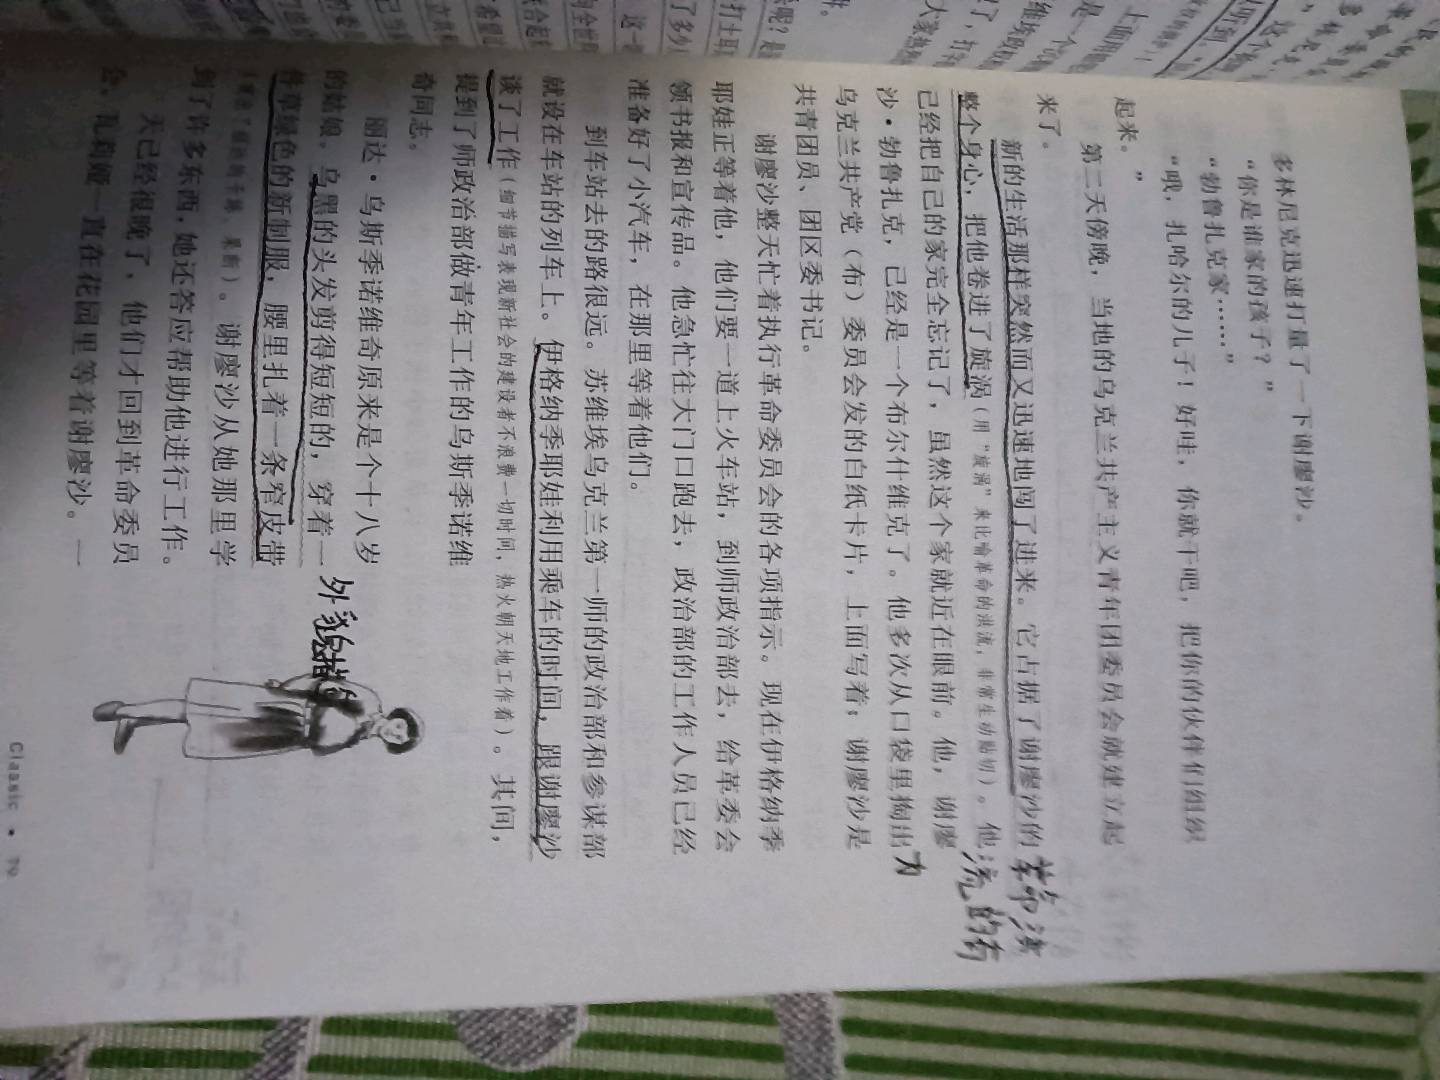 多林尼克迅速打量了一下谢廖沙。
“你是谁家的孩子？”
“勃鲁扎克家……”
“哦，扎哈尔的儿子！好哇，你就干吧，把你的伙伴们组织
起来。”
第二天傍晚，当地的乌克兰共产主义青年团委员会就建立起
来了。
新的生活那样突然而又迅速地闯了进来。它占据了谢廖沙的
整个身心，把他卷进了旋涡（用“旋涡”来比喻革命的洪流，非常生动贴切）。他
已经把自己的家完全忘记了，虽然这个家就近在眼前。他，谢廖
沙·勃鲁扎克，已经是一个布尔什维克了。他多次从口袋里掏出
乌克兰共产党（布）委员会发的白纸卡片，上面写着：谢廖沙是
共青团员、团区委书记。
谢廖沙整天忙着执行革命委员会的各项指示。现在伊格纳季
耶娃正等着他，他们要一道上火车站，到师政治部去，给革委会
领书报和宣传品。他急忙往大门口跑去，政治部的工作人员已经
准备好了小汽车，在那里等着他们。
到车站去的路很远。苏维埃乌克兰第一师的政治部和参谋部
就设在车站的列车上。伊格纳季耶娃利用乘车的时间，跟谢廖沙
谈了工作（细节描写表现新社会的建设者不浪费一切时间，热火朝天地工作着）。其间，
提到了师政治部做青年工作的乌斯季诺维
奇同志。
丽达·乌斯季诺维奇原来是个十八岁
的姑娘。乌黑的头发剪得短短的，穿着一
件草绿色的新制服，腰里扎着一条窄皮带
。谢廖沙从她那里学
到了许多东西，她还答应帮助他进行工作。
天已经很晚了，他们才回到革命委员
会。瓦莉娅一直在花园里等着谢廖沙。一
革命洪
流的有
力
外貌描写
Classic · 79